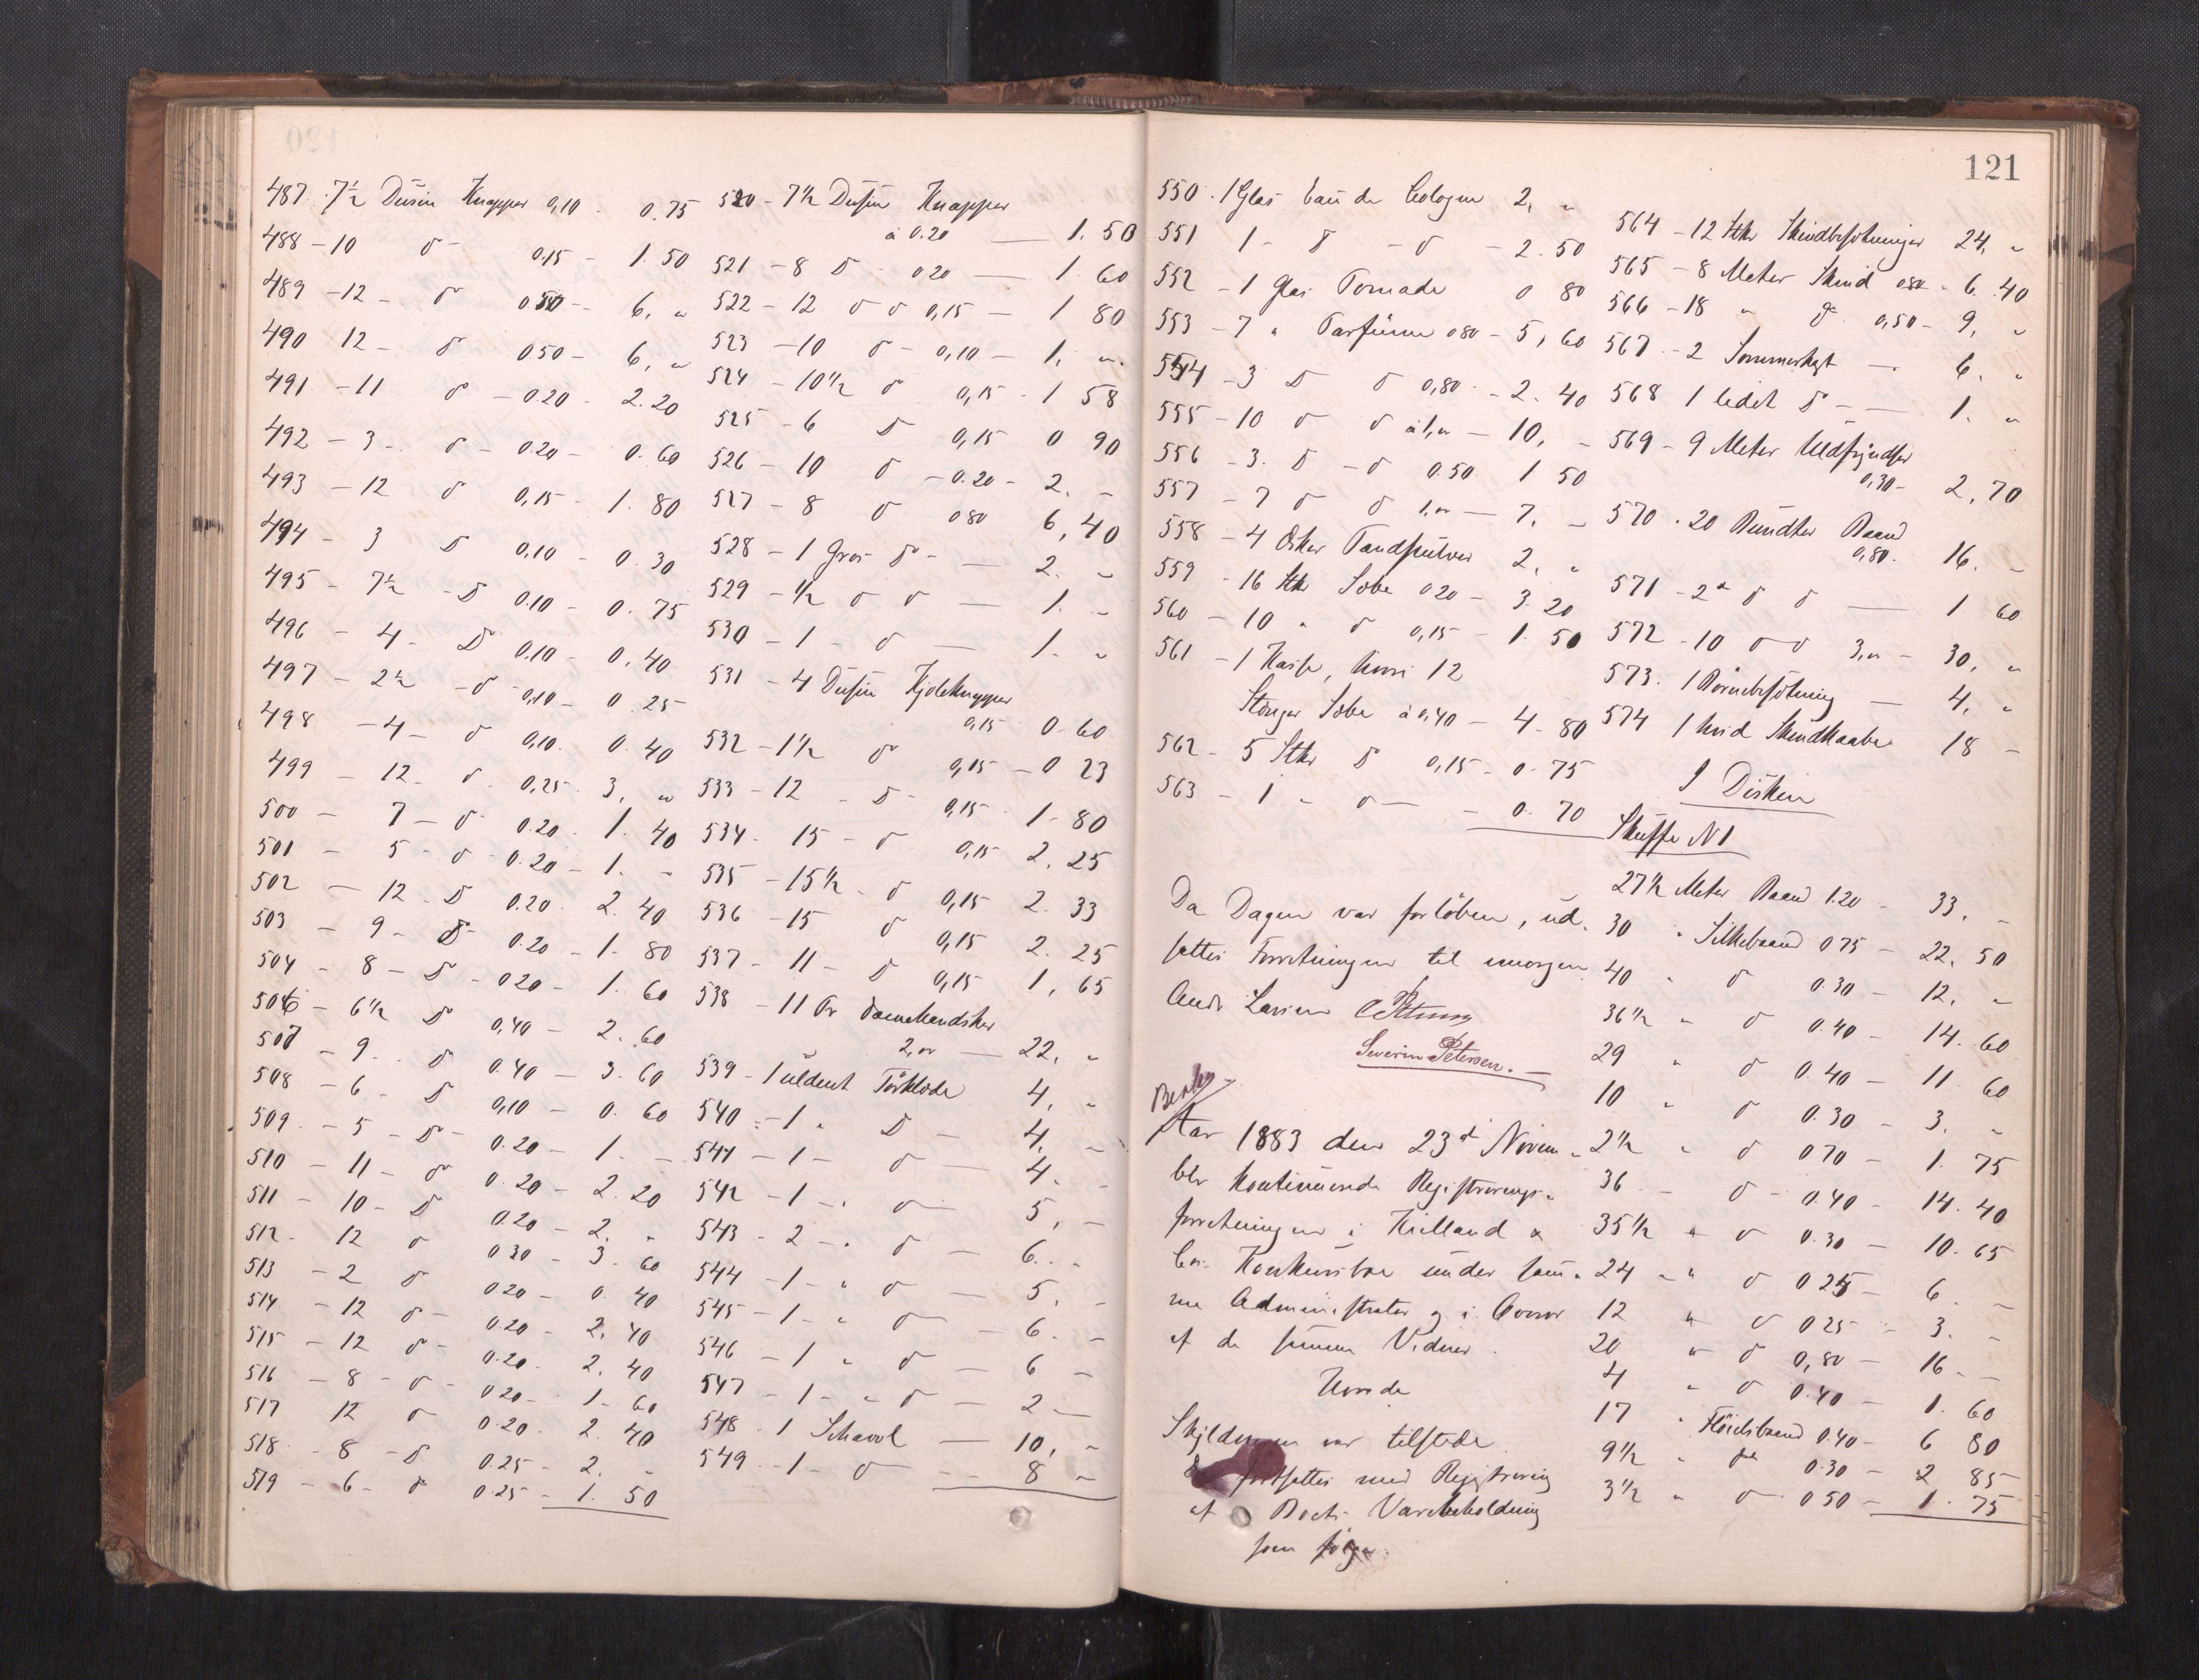 487 . 7½ Dusin Knapper 0,10 - 0.75
488 - 10 d⁰ 0.15 - 1.50
489 - 12 - d⁰ 0.50 - 6, "
490 12 - d⁰ 0.50 - 6, "
491 - 11 d⁰ - 0.20 - 2.20
492 - 3 - d⁰ - 0.20 - 0.60
493 - 12 d⁰ 0,15 - 1.80
494 - 3 d⁰ 0,10 - 0.30
495 - 7½ - d⁰ 0.10 - 0.75
496 - 4 - d⁰ 0.10 - 0.40
497 - 2½ - d⁰ 0,10 - 0 25
498 - 4 - d⁰ 0,10 . 0.40
499 - 12 - d⁰ 0,25 . 3, "
500 - 7 - d⁰ 0.20 - 1. 40
501 - 5 - d⁰ 0.20 - 1. -
502 - 12 d⁰ 0.20 . 2. 40
503 - 9 - d⁰ 0.20 - 1. 80
504 - 8 - d⁰ - 0 20 - 1. 60
506 - 6½ d⁰ 0,40 - 2. 60
507 - 9 . . d⁰ 0.40 - 3. 60
508 - 6 - d⁰ 0,10 - 0. 60
509 . - 5 - d⁰ - 0.20 - 1. -
510 - 11 - d⁰ 0.20 - 2. 20
511 - 10 - d⁰ 0.20 - 2. "
512 - 12 d⁰ 0 30 - 3. 60
513 - 2 d⁰ 0 20 - 0. 40
514 - 12 d⁰ - 0.20 - 2. 40
515 - 12 d⁰ - 0.20 - 2. 40
516 - 8 - d⁰ - 0 20 - 1. 60
517 12 d⁰ 0.20 . 2. 40
518 - 8 - d⁰ 0.25 - 2. "
519 - 6 - d⁰ 0.25 - 1. 50
520 - 7½ Dusin Knapper
à 0.20 — 1. 50
521 - 8 d⁰ - 0 20 — 1. 60
522 - 12 d⁰ d⁰ 0,15 — 1 80
523 - 10 d⁰ - 0,10 — 1, "
524 - 10½ d⁰ 0,15 - 1 58
525 - 6 d⁰ 0,15 0 90
526 - 10 d⁰ - 0.20 - 2. -
527 - 8 d⁰ 0 80 6, 40
528 - 1 Gros d⁰ - — 2. "
529 - ½ d⁰ d⁰ — 1. "
530 - 1 - d⁰ — 1. "
531 - 4 Dusin Kjoleknapper
0,15 0.60
532 - 1½ d⁰ 0,15 - 0 23
533 - 12 - d⁰ - 0,15 - 1. 80
534 - 15 - d⁰ 0,15 2. 25
535 - 15½ - d⁰ 0,15 2. 33
536 - 15 d⁰ 0,15 2. 25
537 - 11 - d⁰ 0,15 1, 65
538 - 11 Pr Damehandsker
2," — 22, "
539 - 1 uldent Törklæde 4, "
540 - 1 " d⁰ - 4, "
541 - 1 - d⁰ — 4. "
542 - 1 - " d⁰ 5, -
543 - 2 - " d⁰ - 6. "
544 - 1 - " d⁰ - 5. -
545 - 1 - " d⁰ - 6. -
546 - 1 " d⁰ - 6 -
547 - 1 - " d⁰ - 2 —
548 . 1 Schavl — 10, "
549 - 1 - d⁰ — 8 "
121
550 . 1 Glas Eau de Cologne 2, "
551 1 - d⁰ - d⁰ - 2.50
552 - 1 Glas Pomade 0 80
553 - 7 " Parfüme 0 80 - 5, 60
554 - 3 d⁰ d⁰ 0,80 - 2. 40
555 - 10 d⁰ d⁰ à 1," — 10, -
556 - 3. d⁰ - d⁰ 0.50 1 50
557 - 7 d⁰ d⁰ 1," — 7. -
558 - 4 Æsker Tandpulver 2, "
559 - 16 Stkr Sæbe 0 20 - 3. 20
560 - 10 " d⁰ 0,15 - 1. 50
561 - 1 Kasse, hvori 12
Stænger Sæbe à 0,40 - 4. 80
562 - 5 Stkr d⁰ 0,15 - 0. 75
563 - 1 " d⁰ — - 0. 70
Da Dagen var forlöben, ud-
sattes Forretningen til imorgen
Andr Larsen
Severin Petersen. —
Aar 1883 den 23de Novem-
ber kontinuerede Registrerings-
forretningen i Kielland &
Cos. Konkursbo under sam-
me Administrator og i Overvær
af de samme Vidner.
Hvorda
Skyldneren var tilstede.
fortsattes med Registrering
af Boets Varebeholdning
som fölger.
564 - 12 Stkr Skindbesætninger 24, "
565 - 8 Meter Skind 0 80 - 6. 40
566 - 18 " d⁰ 0,50 - 9, "
567 - 2 — 6. "
568 1 d⁰ - — 1. "
569 - 9 Meter Uldfryndser
0,30 - 2, 70
570 . 20 Bundter Baand
0,80 . 16. -
571 - 2 " d⁰ d⁰ — 1 60
572 - 10 d⁰ d⁰ 3," - 30, "
573. 1 Börnebesætning — 4, "
574 1 hvid Skindkaabe 18 -
I Disken
Skuffe N 1
27½ Meter Baand 1.20 - 33. -
30 " Silkebaand 0 75 - 22. 50
40 " d⁰ 0.30 - 12, "
36½ " d⁰ 0.40 - 14. 60
29 " d⁰ 0.40 - 11 60
10 " d⁰ 0.30 - 3. "
2½ " d⁰ 0 70 - 1. 75
36 - d⁰ - 0.40 - 14. 40
35½ " d⁰ 0.30 - 10. 65
24 " " d⁰ 0 25 - 6. -
12 " d⁰ 0 25 - 3. -
20 " d⁰ 0,80 - 16. -
4 " d⁰ 0.40 - 1. 60
17 " Flöielsbaand 0.40 - 6 80
9½ " d⁰ 0.30 - 2 85
3½ " d⁰ 0 50 - 1. 75